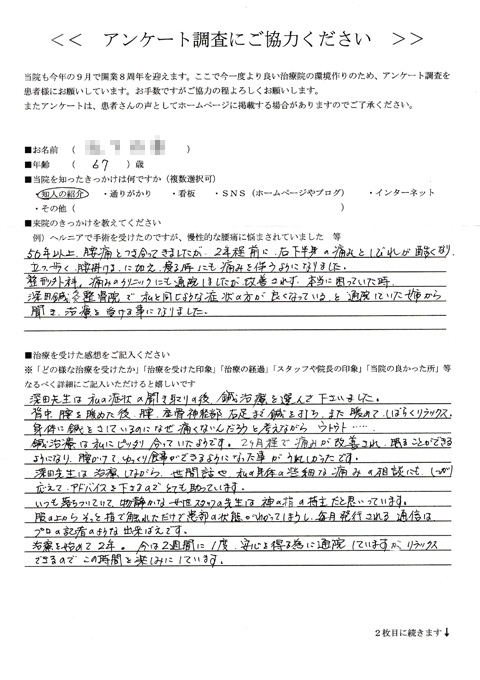 << アンケート調査にご協力ください >>
当院も今年の9月で開業8周年を迎えます。ここで今一度より良い治療院の環境作りのため、アンケート調査を
患者様にお願いしています。お手数ですがご協力の程よろしくお願いします。
またアンケートは、患者さんの声としてホームページに掲載する場合がありますのでご了承ください。
■お名前 ( )
■年齢 ( 67 )歳
■当院を知ったきっかけは何ですか(複数選択可)
・知人の紹介 ・通りがかり ・看板 ・SNS(ホームページやブログ) ・インターネット
・その他( )
■来院のきっかけを教えてください
例)ヘルニアで手術を受けたのですが、慢性的な腰痛に悩まされていました 等
50年以上、腰痛とつき合ってきましたが、2年程前に、右下半身の痛みとしびれが酷くなり、
立つ、歩く、腰掛けるに加え、寝る時にも痛みを伴うようになりました。
整形外科、痛みのクリニックにも通院しましたが改善されず、本当に困っていた時、
深田鍼灸整骨院で私と同じような症状の方が良くなっている、と通院していた姉から
聞き、治療を受ける事になりました。
■治療を受けた感想をご記入ください
※「どの様な治療を受けたか」「治療を受けた印象」「治療の経過」「スタッフや院長の印象」「当院の良かった所」等
なるべく詳細にご記入いただけると嬉しいです
深田先生は私の症状の聞き取りの後、鍼治療を選んで下さいました。
背中、腰を暖めた後、腰、座骨神経部、右足まで鍼を打ち、また暖めて、しばらくリラックス。
身体に鍼をさしているのになぜ痛くないんだろうと考えながら、ウトウト……
鍼治療は私にピッタリ合っていたようです。2ヶ月程で痛みが改善され、眠ることができる
ようになり、腰かけて、ゆっくり食事ができるようになった事がうれしかったです。
深田先生は治療しながら、世間話や、私の身体の些細な痛みの相談にも、しっかり
応えて、アドバイスを下さるのでとても助かっています。
いつも落ちついてて、物静かな女性スタッフの先生は神の指の持主だと思っています。
服の上からそっと指で触れただけで患部の状態がわかってしまうし、毎月発行される通信は、
プロの記者のような出来ばえです。
治療を始めて2年。今は2週間に1度、安心を得る為に通院していますが、リラックス
できるのでこの時間を楽しみにしています。
2枚目に続きます↓